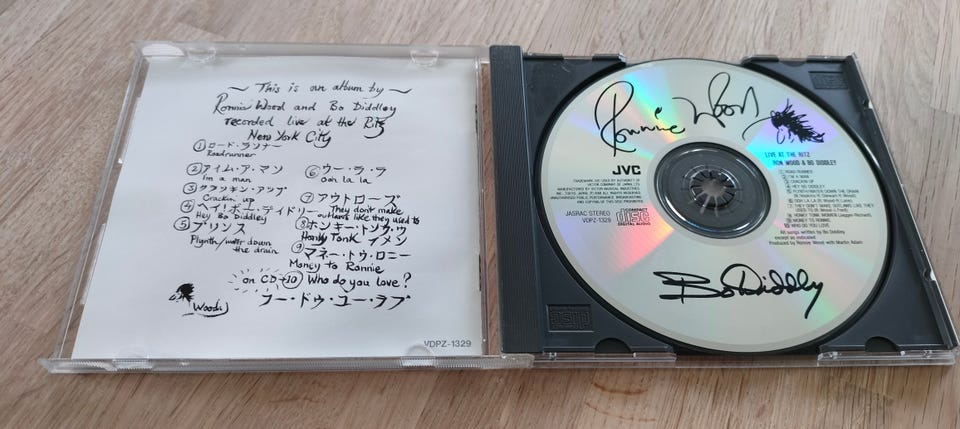 ~ This is an album by ~
Ronnie Wood and Bo Diddley
recorded live at the Ritz
New York City
① ロード・ラソナー
Roadrunner
② アイム・ア・マン
I'm a man
③ クラッキン・アップ
Crackin up
④ ヘイ!ボー・ディドリー
Hey Bo Diddley
⑤ プリンス
Plynth/water down
the drain
⑥ ウー・ラ・ラ
ooh la la
⑦ アウトローズ
They don't make
outlaws like they used to
⑧ ホンキー・トンク・ウイメン
Honky Tonk
⑨ マネー・トゥ・ロニー
Money to Ronnie
on CD→⑩ Who do you love?
フー・ドゥ・ユー・ラブ
Woody
VDPZ-1329
Ronnie Wood
LIVE AT THE RITZ
RON WOOD & BO DIDDLEY
JVC
TRADEMARK, USE UNDER AUTHORITY OF
VICTOR COMPANY OF JAPAN, LTD.
MANUFACTURED BY VICTOR MUSICAL INDUSTRIES,
INC. TOKYO, JAPAN
UNAUTHORIZED PUBLIC PERFORMANCE BROADCASTING
AND COPYING OF THIS DISC PROHIBITED
JASRAC STEREO
VDPZ-1329
COMPACT
disc
DIGITAL AUDIO
1 ROAD RUNNER
2 I'M A MAN
3 CRACKIN UP
4 HEY BO DIDDLEY
5 PLYNTH/WATER DOWN THE DRAIN
6 OOH LA LA (R. Wood-R. Lane)
7 THEY DON'T MAKE OUTLAWS LIKE THEY
USED TO
8 HONKY TONK WOMEN (Jagger-Richard)
9 MONEY TO RONNIE
10 WHO DO YOU LOVE
All songs written by Bo Diddley
except as indicated
Produced by Ronnie Wood with Martin Adam
Bo Diddley